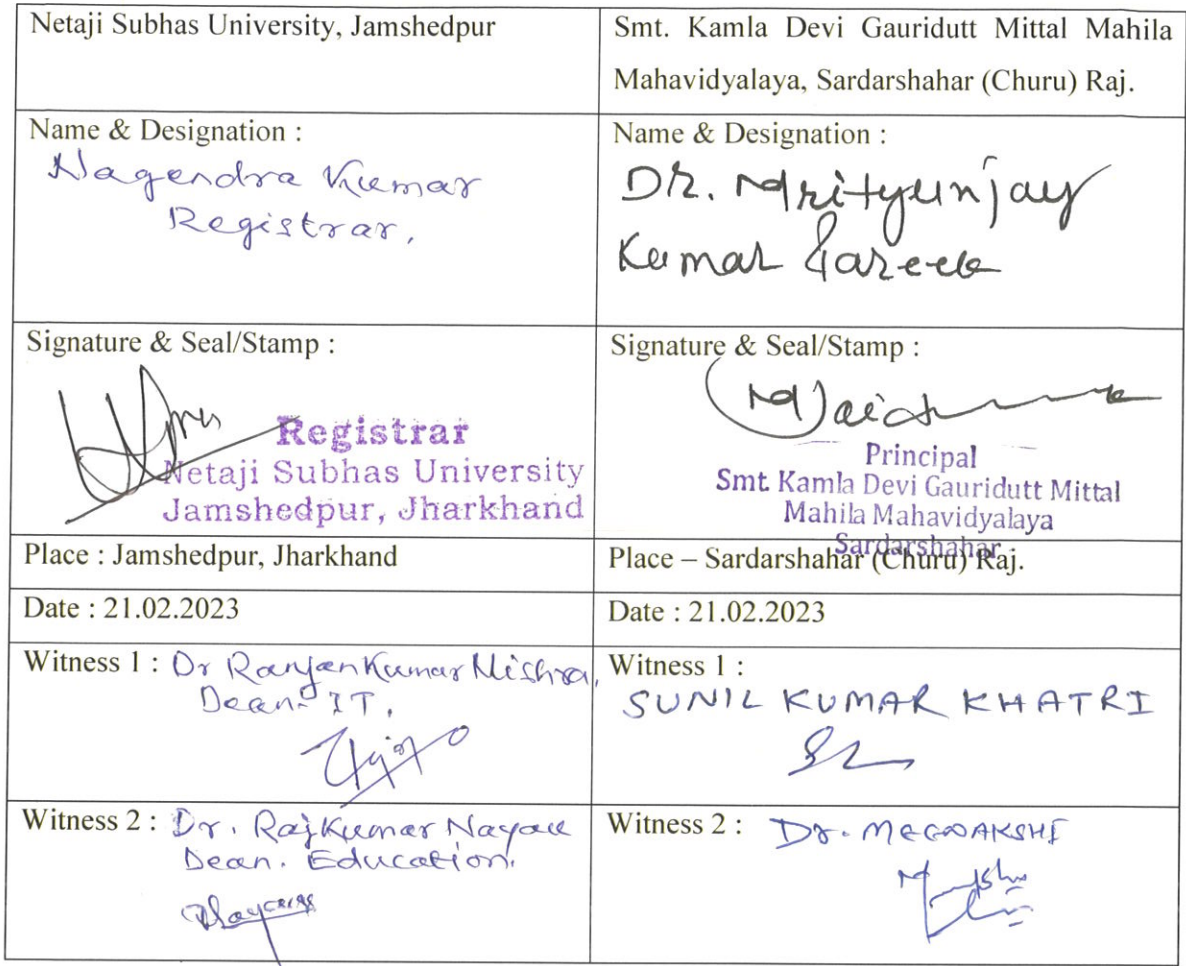 Netaji Subhas University, Jamshedpur
Smt. Kamla Devi Gauridutt Mittal Mahila
Mahavidyalaya, Sardarshahar (Churu) Raj.
Name & Designation :
Nagendra Kumar
Registrar,
Name & Designation :
DR. Mrityunjay
Kumar Pareek
Signature & Seal/Stamp :
Registrar
Netaji Subhas University
Jamshedpur, Jharkhand
Signature & Seal/Stamp :
Principal
Smt. Kamla Devi Gauridutt Mittal
Mahila Mahavidyalaya
Sardarshahar
Place : Jamshedpur, Jharkhand
Place – Sardarshahar (Churu) Raj.
Date : 21.02.2023
Date : 21.02.2023
Witness 1 : Dr Ranjan Kumar Mishra,
Dean IT,
Witness 1 :
SUNIL KUMAR KHATRI
Witness 2 : Dr. Raj Kumar Nayak
Dean. Education.
Witness 2 : Dr. MEENAKSHI